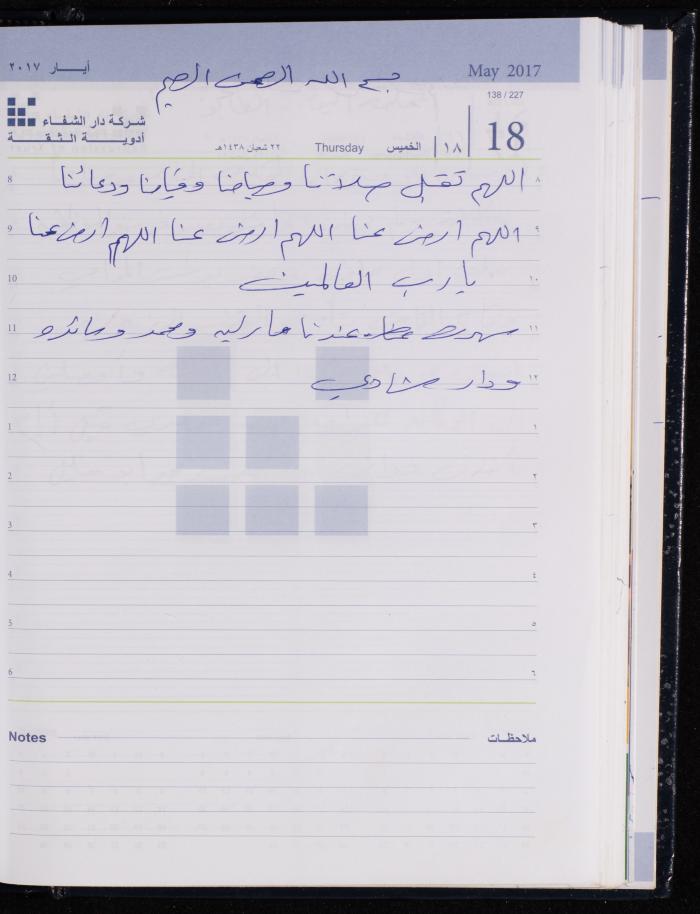 أيــار ٢٠١٧
May 2017
بسم الله الرحمن الرحيم
138 / 227
شركة دار الشفاء
أدويـــة الـثـقــة
18
١٨
الخميس
Thursday
٢٢ شعبان ١٤٣٨هـ
8 اللهم تقبل صلاتنا وصيامنا وقيامنا ودعائنا ٨
9 اللهم ارض عنا اللهم ارض عنا اللهم ارض عنا ٩
10 يا رب العالمين ١٠
11 سهرت عندنا ومحمد ١١
12 ودار شادي ١٢
1 ١
2 ٢
3 ٣
4 ٤
5 ٥
6 ٦
Notes ملاحظات